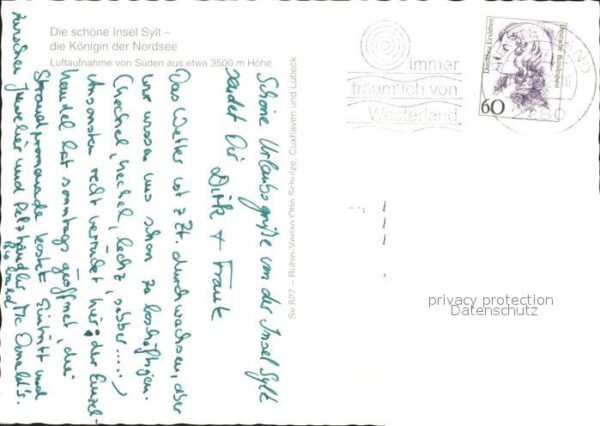 Die schöne Insel Sylt –
die Königin der Nordsee
Luftaufnahme von Süden aus etwa 3500 m Höhe
immer
träum' ich von
Westerland
Deutsche Bundespost
60
Schöne Urlaubsgrüße von der Insel Sylt
sendet Dir
Dirk + Frauk
Das Wetter ist z.Zt. durchwachsen, aber
wir wissen uns schon zu beschäftigen.
(hechel, hechel, lechz, sabber.....)
Ansonsten recht verrückt hier: der Einzel-
handel hat sonntags geöffnet, die
Strandpromenade kostet Eintritt und
zwischen Juwelier und Pelzhändler Mc Donald's.
Sy 827 – Ruhin-Verlag Otto Schulze, Cuxhaven und Lübeck
privacy protection
Datenschutz